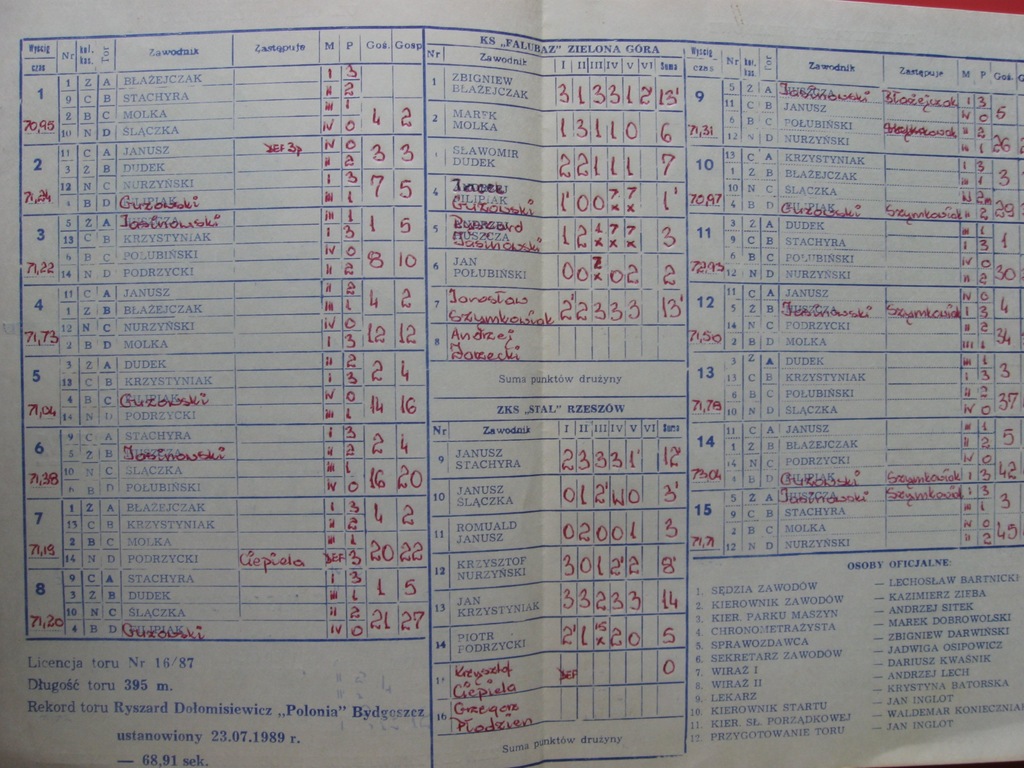 Wyścig czas Nr kol. kas. Tor Zawodnik Zastępuje M P Goś. Gosp
1 1 Z A BŁAŻEJCZAK I 3
9 C B STACHYRA II 2
2 B C MOLKA III 1 4 2
70,95 10 N D ŚLĄCZKA IV 0
2 11 C A JANUSZ IV 0 3 3
3 Z B DUDEK II 2
12 N C NURZYŃSKI I 3 7 5
71,24 4 B D Gużowski III 1
3 5 Z A Jasinowski III 1 1 5
13 C B KRZYSTYNIAK I 3
6 B C POŁUBIŃSKI IV 0 8 10
71,22 14 N D PODRZYCKI II 2
4 11 C A JANUSZ II 2 4 2
1 Z B BŁAŻEJCZAK III 1
12 N C NURZYŃSKI IV 0 12 12
71,73 2 B D MOLKA I 3
5 3 Z A DUDEK II 2 2 4
13 C B KRZYSTYNIAK I 3
4 B C Gużowski IV 0 14 16
71,04 14 N D PODRZYCKI III 1
6 9 C A STACHYRA I 3 2 4
5 Z B Jasinowski II 2
10 N C ŚLĄCZKA III 1 16 20
71,38 6 B D POŁUBIŃSKI IV 0
7 1 Z A BŁAŻEJCZAK I 3 4 2
13 C B KRZYSTYNIAK II 2
2 B C MOLKA III 1 20 22
71,19 14 N D PODRZYCKI Ciepiela DEF 3
8 9 C A STACHYRA I 3 1 5
3 Z B DUDEK III 1
10 N C ŚLĄCZKA II 2 21 27
71,20 4 B D Gużowski IV 0
Licencja toru Nr 16/87
Długość toru 395 m.
Rekord toru Ryszard Dołomisiewicz „Polonia" Bydgoszcz
ustanowiony 23.07.1989 r.
— 68,91 sek.
KS „FALUBAZ" ZIELONA GÓRA
Nr Zawodnik I II III IV V VI Suma
1 ZBIGNIEW BŁAŻEJCZAK 3 1 3 3 1 2' 13'
2 MAREK MOLKA 1 3 1 1 0 6
SŁAWOMIR DUDEK 2 2 1 1 1 7
4 Jacek Gużowski 1' 0 0 1'
5 Jasinowski 1 2 3
6 JAN POŁUBIŃSKI 0 0 0 2 2
7 Jarosław Szymkowiak 2' 2 3 3 3 13'
8 Andrzej Jarzecki
Suma punktów drużyny
ZKS „STAL" RZESZÓW
Nr Zawodnik I II III IV V VI Suma
9 JANUSZ STACHYRA 2 3 3 3 1' 12'
10 JANUSZ ŚLĄCZKA 0 1 2' W 0 3'
11 ROMUALD JANUSZ 0 2 0 0 1 3
12 KRZYSZTOF NURZYŃSKI 3 0 1 2' 2' 8"
13 JAN KRZYSTYNIAK 3 3 2 3 3 14
14 PIOTR PODRZYCKI 2' 1 2 0 5
Krzysztof Ciepiela DEF 0
16 Grzegorz Płodzień
Suma punktów drużyny
Wyścig czas Nr kol. kas. Tor Zawodnik Zastępuje M P
9 5 Z A Jasinowski Błażejczak I 3
11 C B JANUSZ IV 0 5
6 B C POŁUBIŃSKI II 2
71,31 12 N D NURZYŃSKI III 1 26
10 13 C A KRZYSTYNIAK I 3
1 Z B BŁAŻEJCZAK III 1 3
10 N C ŚLĄCZKA W
70,97 4 B D Gużowski Szymkowiak II 2 29
11 3 Z A DUDEK III 1
9 C B STACHYRA I 3 1
6 B C POŁUBIŃSKI IV 0
72,93 12 N D NURZYŃSKI II 2 30
12 11 C A JANUSZ IV 0
5 Z B Jasinowski Szymkowiak I 3 4
14 N C PODRZYCKI II 2
71,50 2 B D MOLKA III 1 34
13 3 Z A DUDEK III 1
13 C B KRZYSTYNIAK I 3 3
6 B C POŁUBIŃSKI II 2
71,78 10 N D ŚLĄCZKA IV 0 37
14 11 C A JANUSZ III 1
1 Z B BŁAŻEJCZAK II 2 5
14 N C PODRZYCKI IV 0
73,04 4 B D Gużowski Szymkowiak I 3 42
15 5 Z A Jasinowski Szymkowiak I 3
9 C B STACHYRA III 1 3
2 B C MOLKA IV 0
71,71 12 N D NURZYŃSKI II 2 45
OSOBY OFICJALNE:
1. SĘDZIA ZAWODÓW — LECHOSŁAW BARTNICKI
2. KIEROWNIK ZAWODÓW — KAZIMIERZ ZIEBA
3. KIER. PARKU MASZYN — ANDRZEJ SITEK
4. CHRONOMETRAŻYSTA — MAREK DOBROWOLSKI
5. SPRAWOZDAWCA — ZBIGNIEW DARWIŃSKI
6. SEKRETARZ ZAWODÓW — JADWIGA OSIPOWICZ
7. WIRAŻ I — DARIUSZ KWAŚNIK
8. WIRAŻ II — ANDRZEJ LECH
9. LEKARZ — KRYSTYNA BATORSKA
10. KIEROWNIK STARTU — JAN INGLOT
11. KIER. SŁ. PORZĄDKOWEJ — WALDEMAR KONIECZNIA
12. PRZYGOTOWANIE TORU — JAN INGLOT